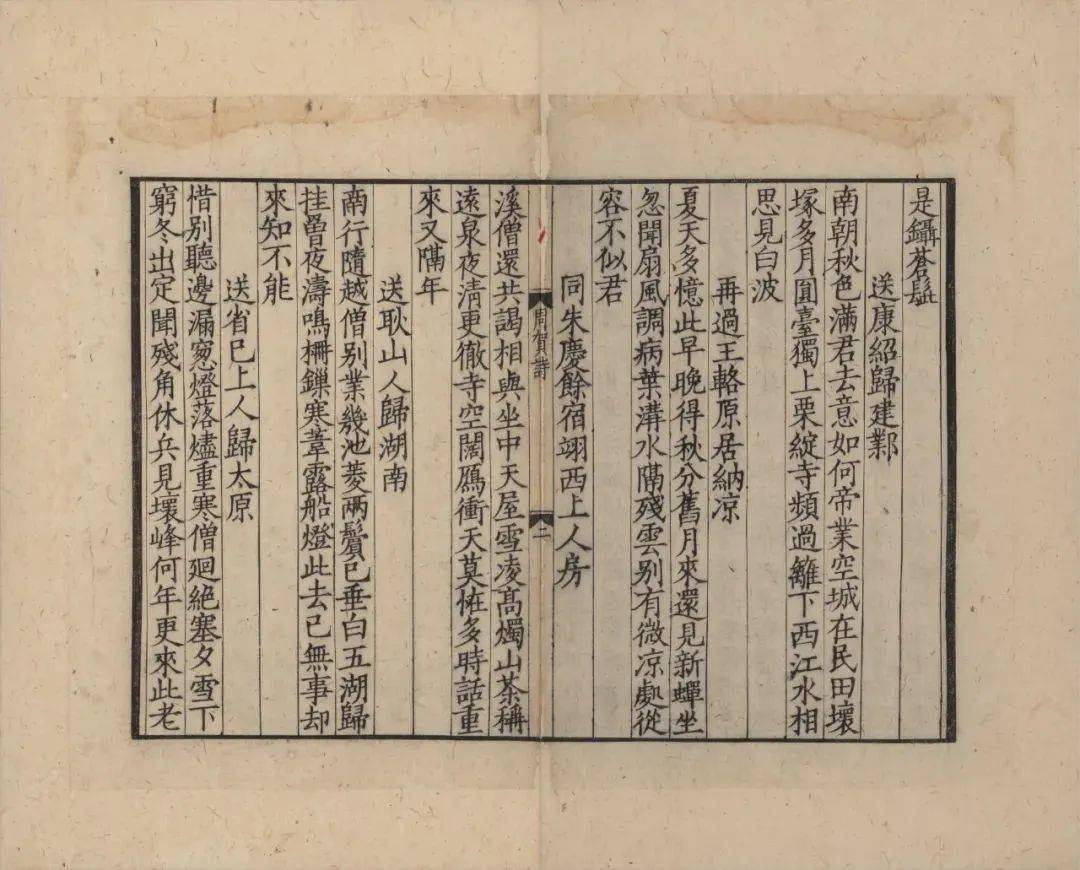 是鑷蒼髭
送康紹歸建鄴
南朝秋色滿君去意如何帝業空城在民田壞
塚多月圓臺獨上栗綻寺頻過籬下西江水相
思見白波
再過王輅原居納凉
夏天多憶此早晚得秋分舊月來還見新蟬坐
忽聞扇風調病葉溝水隔殘雲别有微凉處從
容不似君
同朱慶餘宿翊西上人房
周賀詩
二
溪僧還共謁相與坐中天屋雪凌高燭山茶稱
遠泉夜清更徹寺空闊鴈衝天莫恠多時話重
來又隔年
送耿山人歸湖南
南行隨越僧别業幾池菱兩鬢已垂白五湖歸
挂罾夜濤鳴柵鏁寒葦露船燈此去已無事却
來知不能
送省已上人歸太原
惜别聽邊漏窓燈落燼重寒僧廻絶塞夕雪下
窮冬出定聞殘角休兵見壞峰何年更來此老